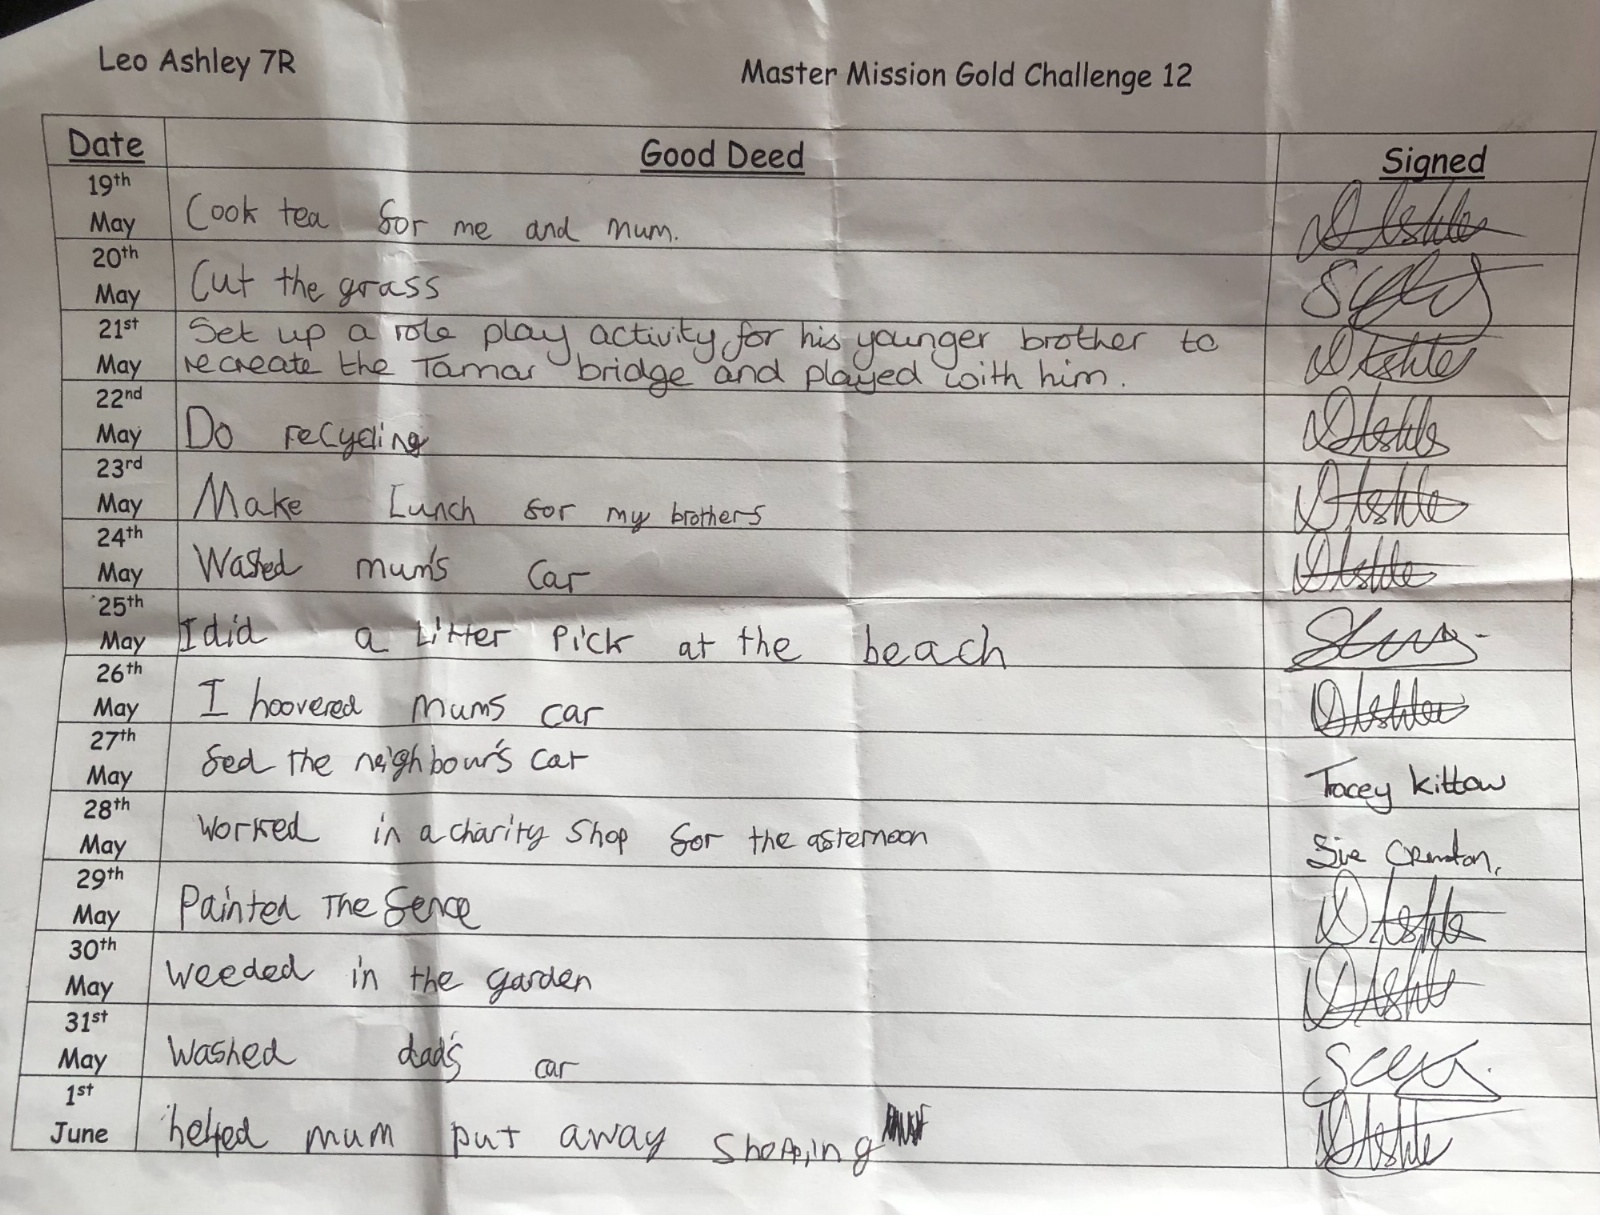 Leo Ashley 7R
Master Mission Gold Challenge 12
Date Good Deed Signed
19th
May Cook tea for me and mum.
20th
May Cut the grass
21st Set up a role play activity for his younger brother to
May recreate the Tamar bridge and played with him.
22nd
May Do recycling
23rd
May Make Lunch for my brothers
24th
May Washed mum's car
25th
May I did a Litter Pick at the beach
26th
May I hoovered mums car
27th
May fed the neighbour's cat Tracey Kittow
28th
May worked in a charity Shop for the afternoon Sue
29th
May Painted The fence
30th
May weeded in the garden
31st
May washed dad's car
1st
June helped mum put away shopping